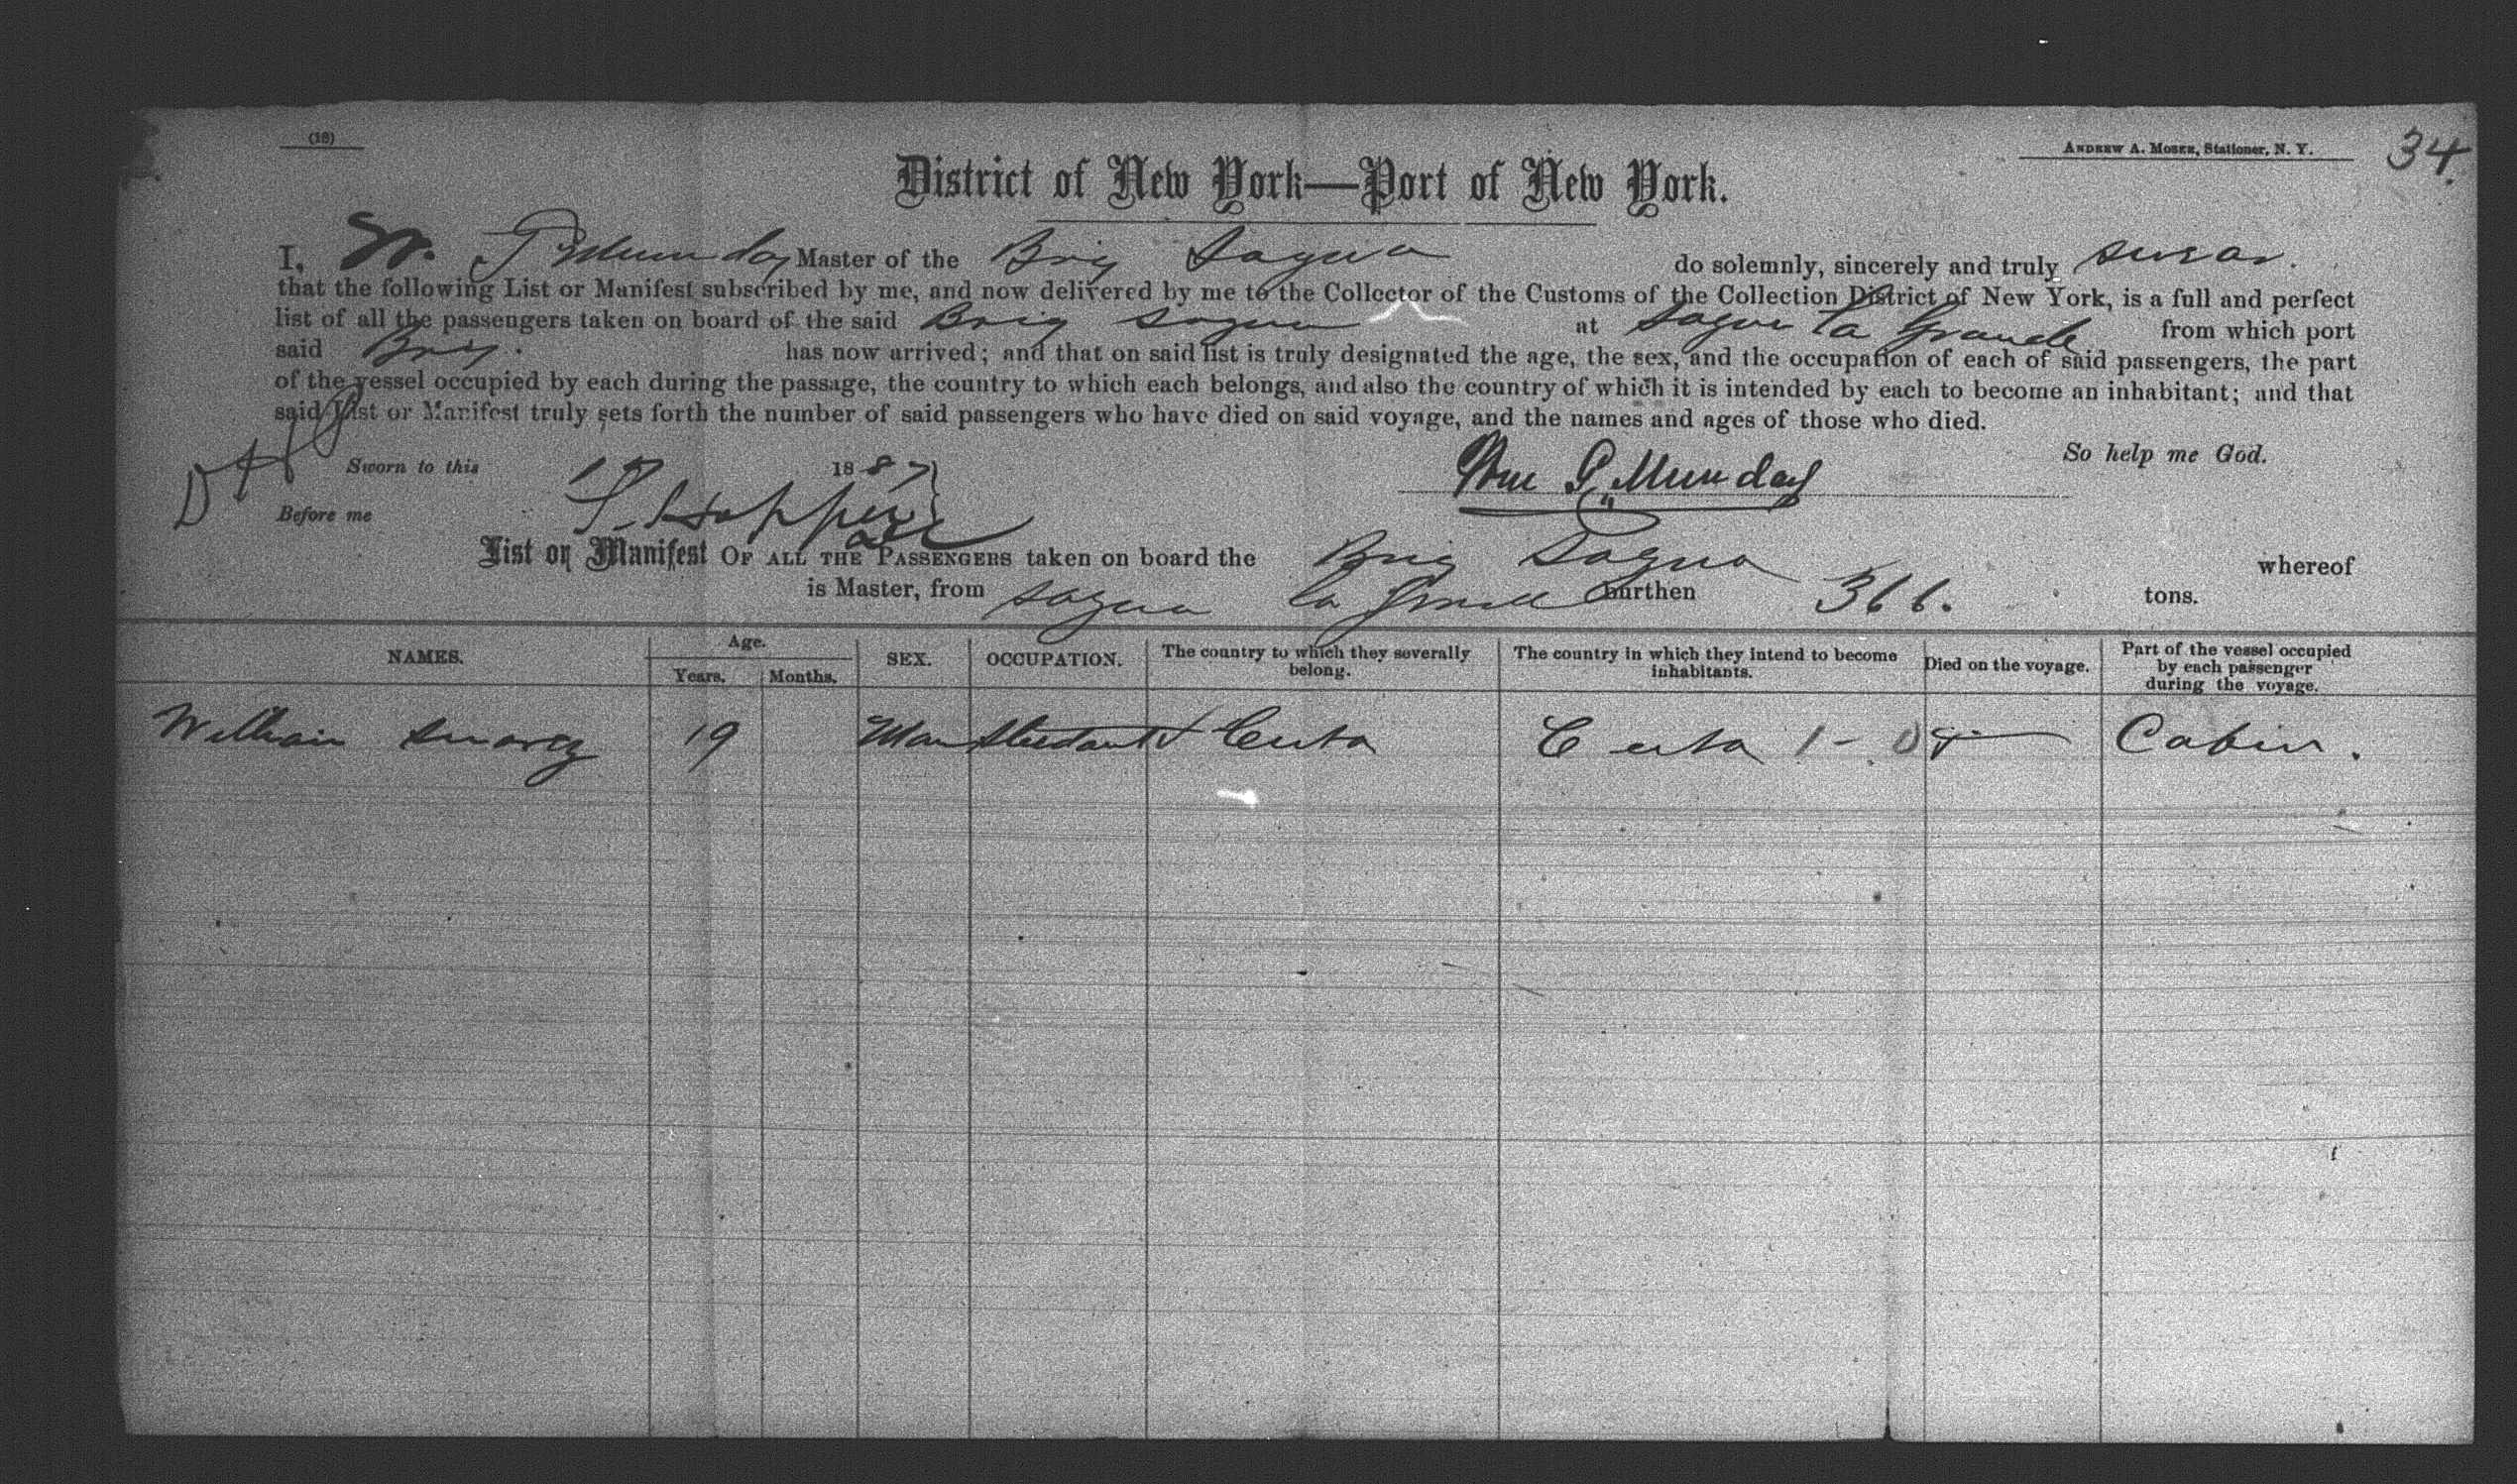 (18)
ANDREW A. MOSER, Stationer, N. Y.
34.
District of New York—Port of New York.
I, W. P Munday Master of the Brig Sagua do solemnly, sincerely and truly swear.
that the following List or Manifest subscribed by me, and now delivered by me to the Collector of the Customs of the Collection District of New York, is a full and perfect
list of all the passengers taken on board of the said Brig Sagua at Sagua La Grande from which port
said Brig. has now arrived; and that on said list is truly designated the age, the sex, and the occupation of each of said passengers, the part
of the vessel occupied by each during the passage, the country to which each belongs, and also the country of which it is intended by each to become an inhabitant; and that
said List or Manifest truly sets forth the number of said passengers who have died on said voyage, and the names and ages of those who died.
So help me God.
Sworn to this 1887
Wm P. Munday
Before me
List or Manifest OF ALL THE PASSENGERS taken on board the Brig Sagua whereof
is Master, from Sagua La Grande burthen 366. tons.
NAMES. Age. Years. Months. SEX. OCCUPATION. The country to which they severally belong. The country in which they intend to become inhabitants. Died on the voyage. Part of the vessel occupied by each passenger during the voyage.
William 19 Man Student Cuba Cuba Cabin.